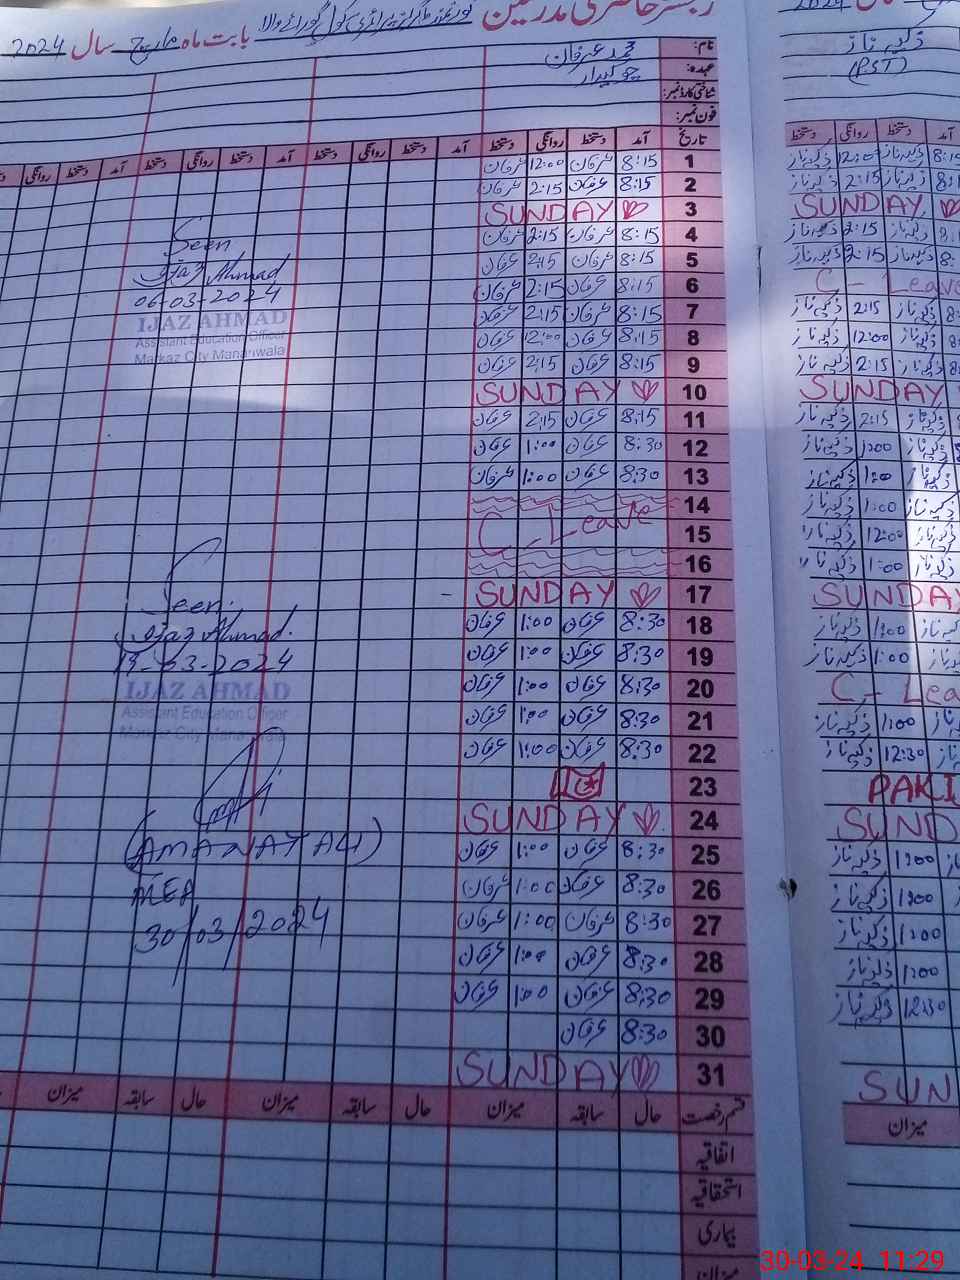 رجسٹر حاضری مدرسین گورنمنٹ گرلز پرائمری سکول بابت ماہ مارچ سال 2024
نام: محمد عرفان
عہدہ: چوکیدار
شناختی کارڈ نمبر:
فون نمبر:
تاریخ آمد دستخط روانگی دستخط آمد دستخط روانگی دستخط آمد دستخط روانگی دستخط
1 8:15 عرفان 12:00 عرفان
2 8:15 عرفان 2:15 عرفان
3 SUNDAY
4 8:15 عرفان 2:15 عرفان
5 8:15 عرفان 2:15 عرفان
6 8:15 عرفان 2:15 عرفان
7 8:15 عرفان 2:15 عرفان
8 8:15 عرفان 12:00 عرفان
9 8:15 عرفان 2:15 عرفان
10 SUNDAY
11 8:15 عرفان 2:15 عرفان
12 8:30 عرفان 1:00 عرفان
13 8:30 عرفان 1:00 عرفان
14
15 C-Leave
16
17 SUNDAY
18 8:30 عرفان 1:00 عرفان
19 8:30 عرفان 1:00 عرفان
20 8:30 عرفان 1:00 عرفان
21 8:30 عرفان 1:00 عرفان
22 8:30 عرفان 1:00 عرفان
23
24 SUNDAY
25 8:30 عرفان 1:00 عرفان
26 8:30 عرفان 1:00 عرفان
27 8:30 عرفان 1:00 عرفان
28 8:30 عرفان 1:00 عرفان
29 8:30 عرفان 1:00 عرفان
30 8:30 عرفان
31 SUNDAY
قسم رخصت حال سابقہ میزان حال سابقہ میزان حال سابقہ میزان
اتفاقیہ
استحقاقیہ
بیماری
میزان
Seen
Ijaz Ahmad
06-03-2024
IJAZ AHMAD
Assistant Education Officer
Markaz City Mananwala
Seen
Ijaz Ahmad
19-03-2024
IJAZ AHMAD
Assistant Education Officer
Markaz City Mananwala
(AMANAT ALI)
MEA
30/03/2024
2024
ذکیہ ناز
(PST)
آمد دستخط روانگی دستخط
ذکیہ ناز 12:00 ذکیہ ناز
ذکیہ ناز 2:15 ذکیہ ناز
SUNDAY
ذکیہ ناز 2:15 ذکیہ ناز
ذکیہ ناز 2:15 ذکیہ ناز
C-Leave
ذکیہ ناز 2:15 ذکیہ ناز
ذکیہ ناز 12:00 ذکیہ ناز
ذکیہ ناز 2:15 ذکیہ ناز
SUNDAY
ذکیہ ناز 2:15 ذکیہ ناز
ذکیہ ناز 1:00 ذکیہ ناز
ذکیہ ناز 1:00 ذکیہ ناز
ذکیہ ناز 1:00 ذکیہ ناز
ذکیہ ناز 12:00 ذکیہ ناز
ذکیہ ناز 1:00 ذکیہ ناز
SUNDAY
ذکیہ ناز 1:00
ذکیہ ناز 1:00
C-Lea
ذکیہ ناز 1:00
ذکیہ ناز 12:30
PAKI
SUND
ذکیہ ناز 1:00
ذکیہ ناز 1:00
ذکیہ ناز 1:00
ذکیہ ناز 1:00
ذکیہ ناز 12:30
SUN
میزان
30-03-24 11:29